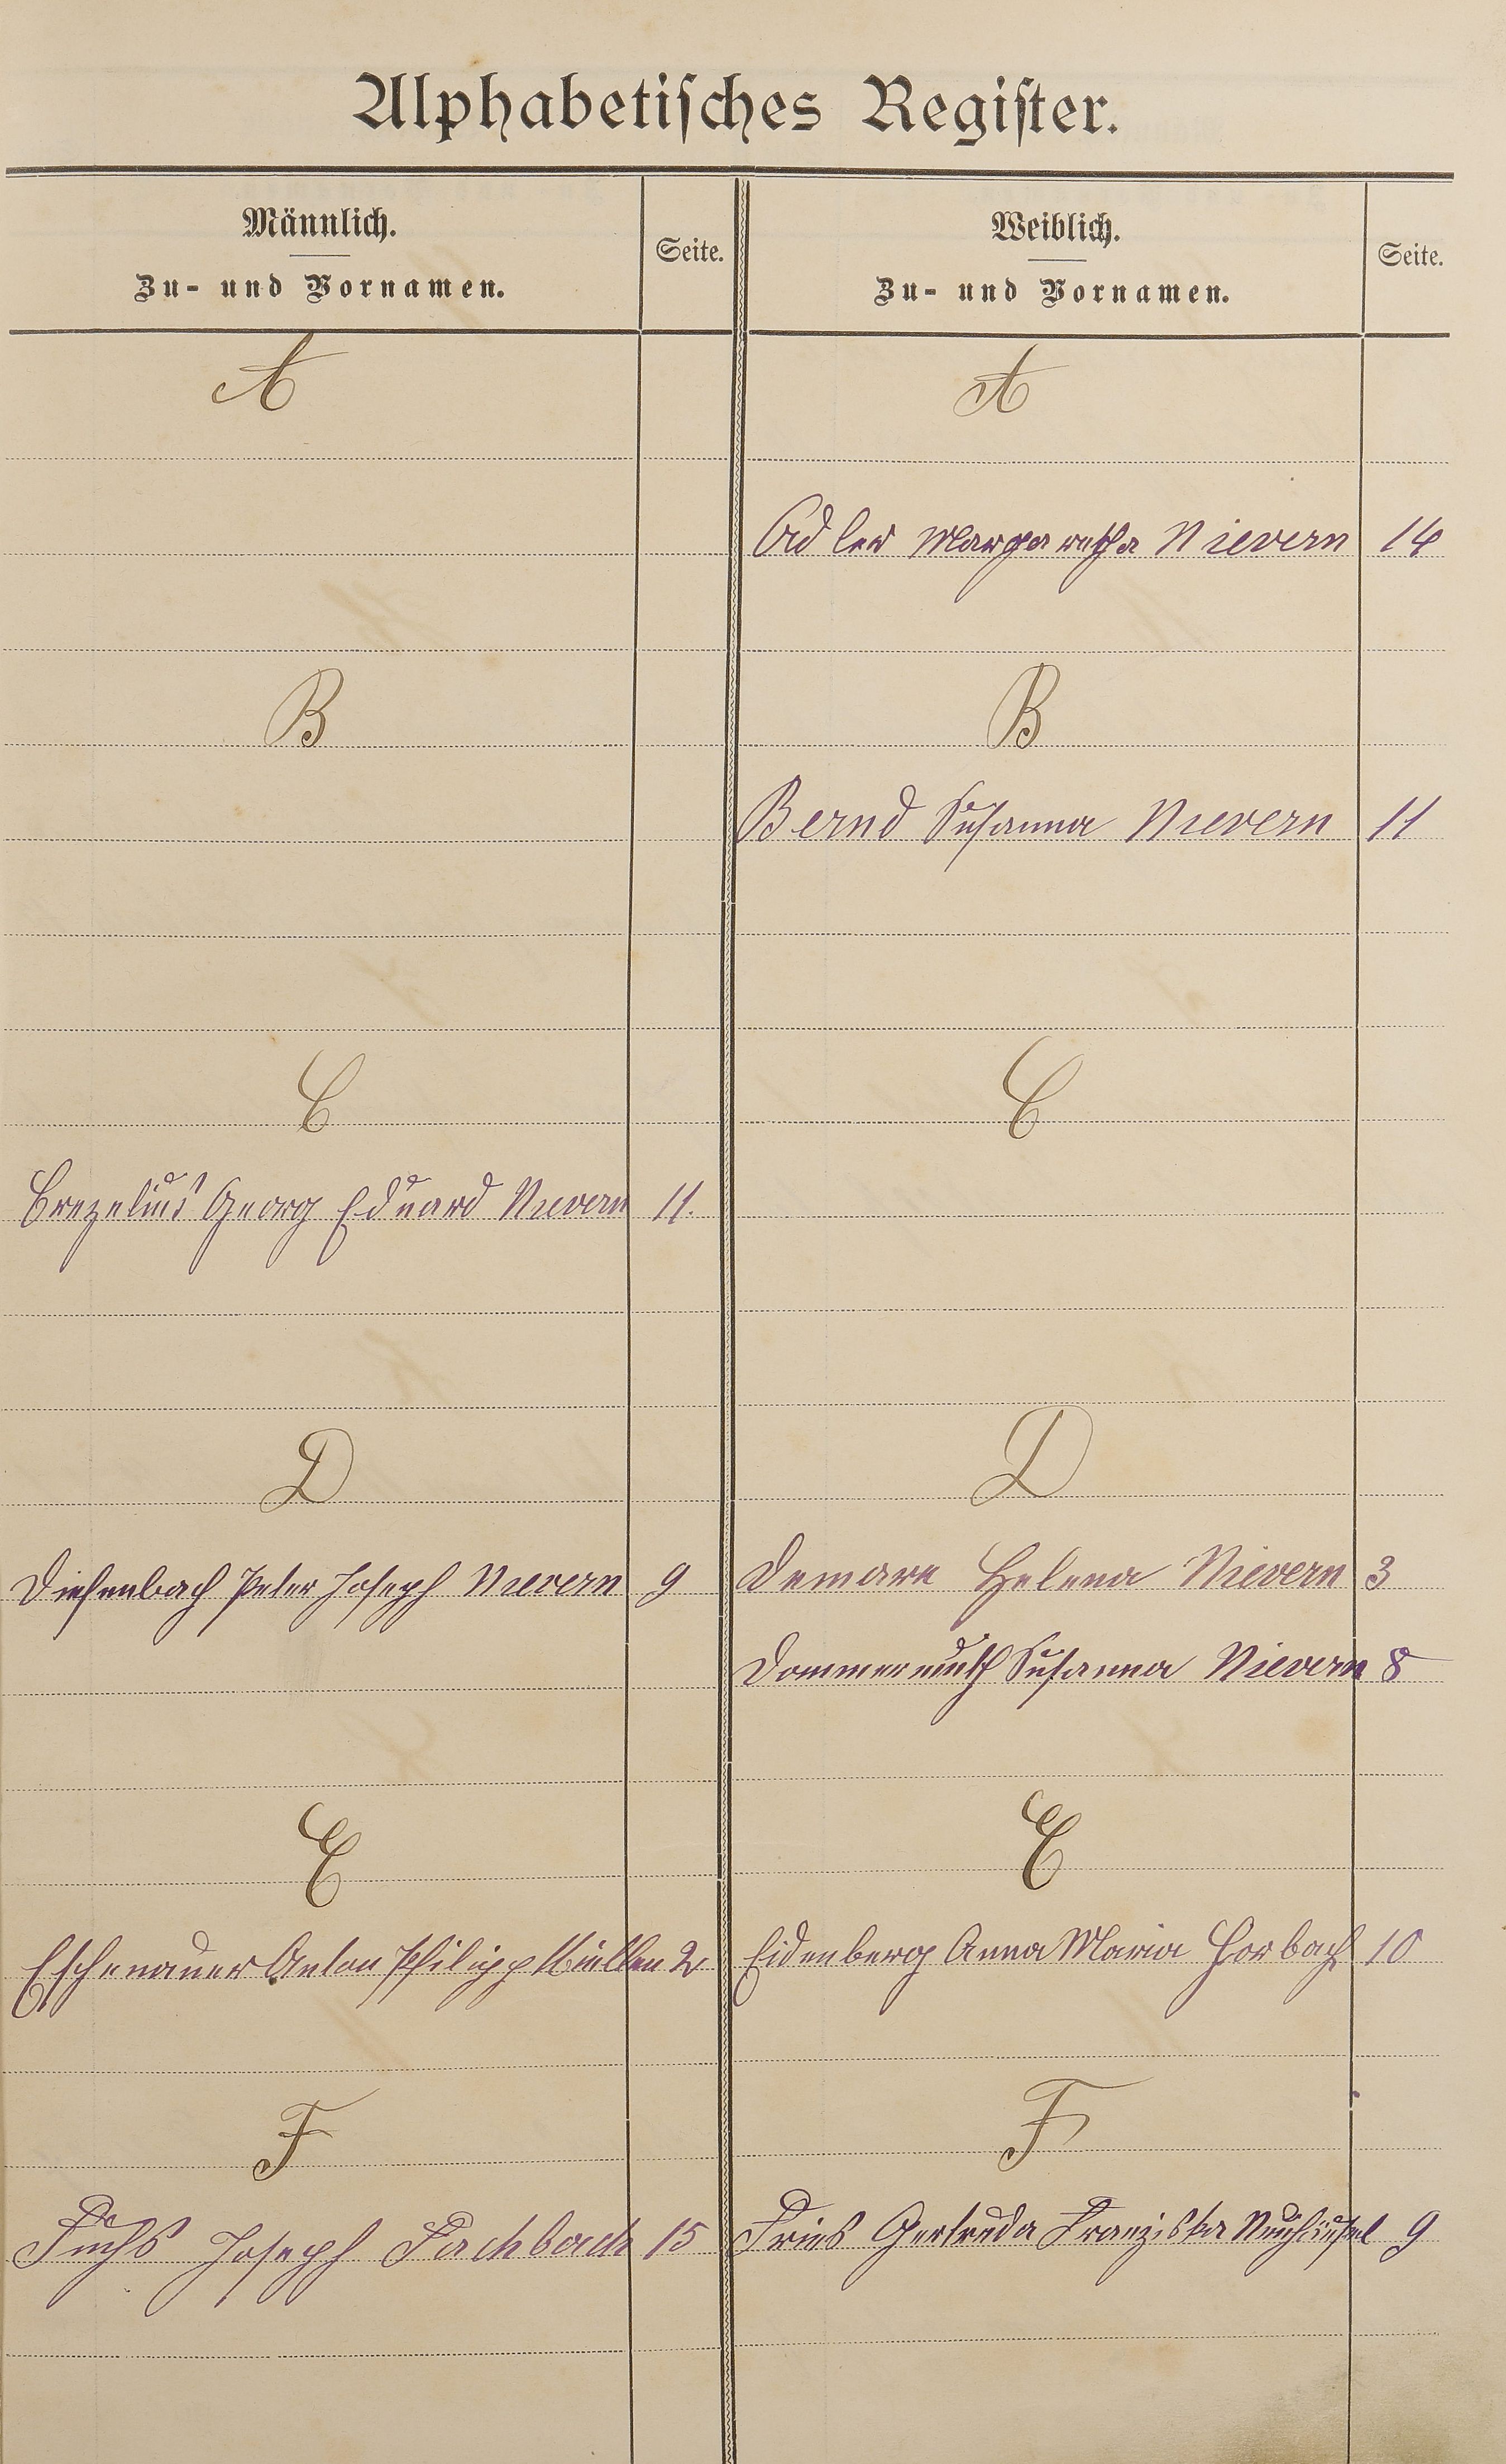 Alphabetisches Register.
Männlich.
Zu- und Vornamen.
Seite.
Weiblich.
Zu- und Vornamen.
Seite.
A
A
Adler Margaretha Nievern 14
B
B
Bernd Susanna Nievern 11
C
C
Crezelius Georg Eduard Nievern 11.
D
D
Diefenbach Peter Joseph Nievern 9
Demare Helena Nievern 3
Dommermuth Susanna Nievern 8
E
E
Eschenauer Anton Philipp 2
Eidenberg Anna Maria Horbach 10
F
F
Fuchs Joseph Fachbach 15
Fries Gertruda Franziska Neuhäusel 9